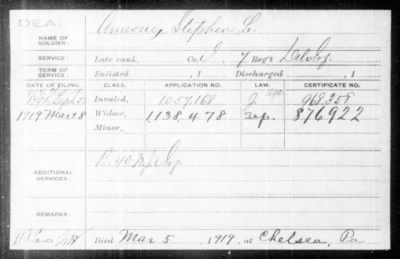 DEAD
NAME OF SOLDIER: Stephen L.
SERVICE: Late rank, Co. I, 7 Reg't Del Inf
TERM OF SERVICE: Enlisted , 1 Discharged , 1
DATE OF FILING. CLASS. APPLICATION NO. LAW. CERTIFICATE NO.
Invalid, 1057,168 968,358
1919 Mar 28 Widow, 1,138,478 Sep. 876922
Minor,
ADDITIONAL SERVICES: Inf
REMARKS:
Died Mar 5, 1919, at Chelsea, Pa